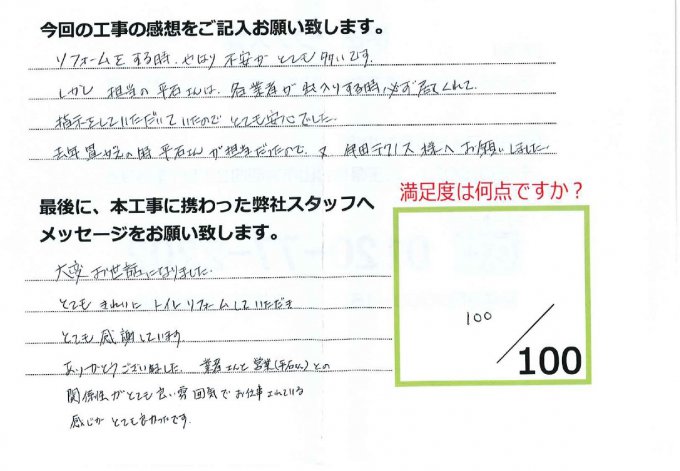 今回の工事の感想をご記入お願い致します。
リフォームをする時、やはり不安がとても多いです。
しかし担当の平石さんは、各業者が出入りする時必ず居てくれて、
指示をしていただいていたのでとても安心でした。
去年畳替えの時平石さんが担当だったので、又 テクノス様へお願いしました。
最後に、本工事に携わった弊社スタッフへ
メッセージをお願い致します。
大変お世話になりました。
とてもきれいにトイレリフォームしていただき
とても感謝しています。
ありがとうございました。業者さんと営業(平石さん)との
関係性がとても良い雰囲気でお仕事されている
感じがとても良かったです。
満足度は何点ですか？
100
100